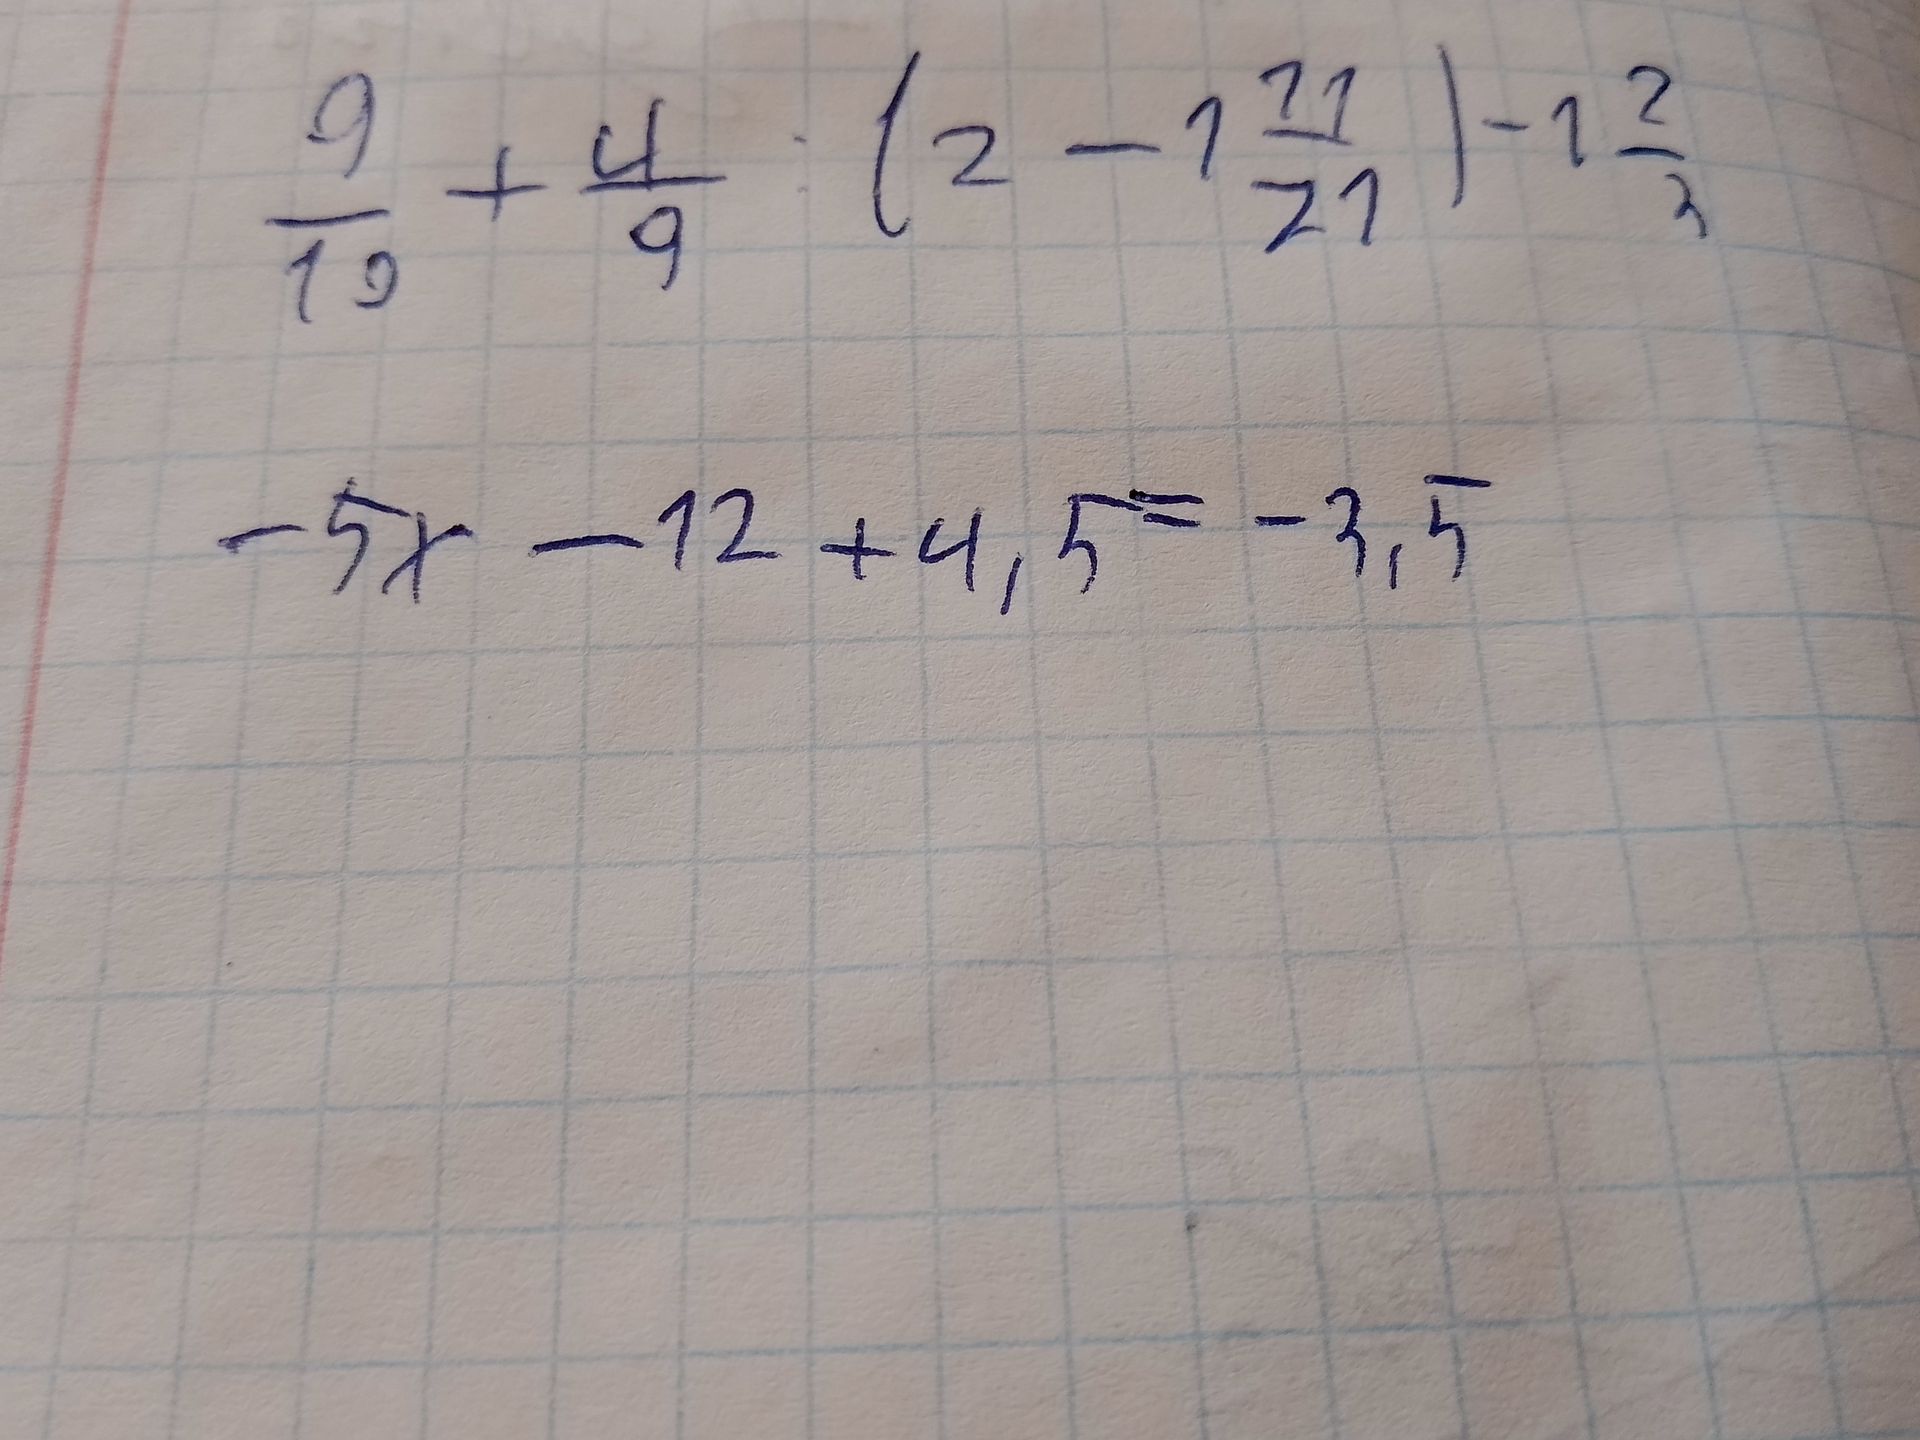 9/10 + 4/9 : (2 - 1 11/21) - 1 2/3
-5x - 12 + 4,5 = -3,5